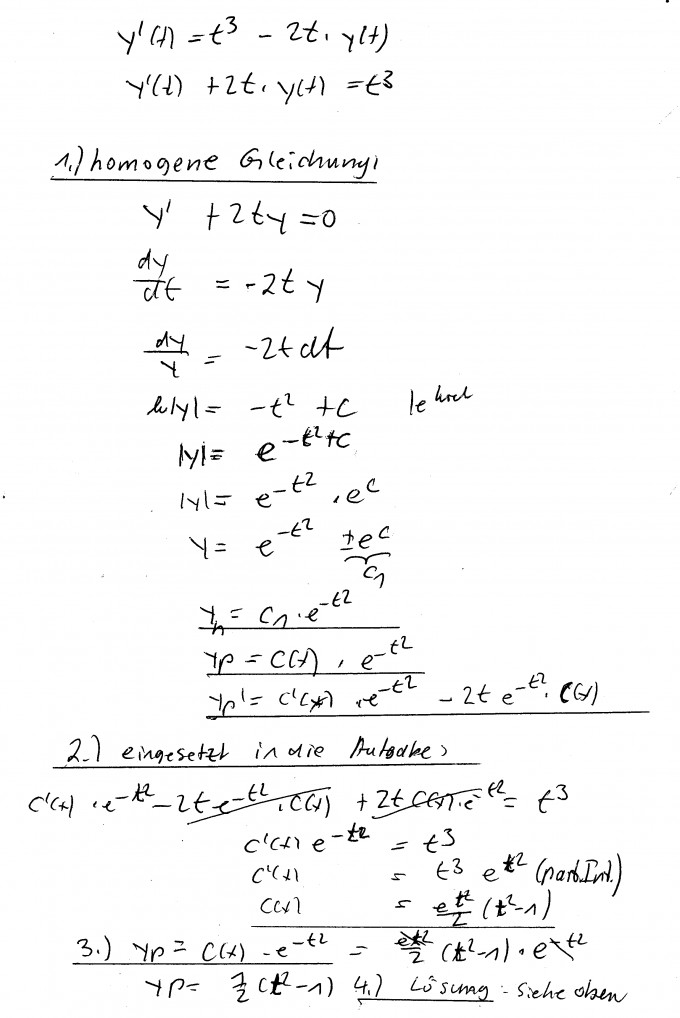 y'(t) = t³ - 2t · y(t)
y'(t) + 2t · y(t) = t³
1.) homogene Gleichung:
y' + 2ty = 0
dy/dt = -2t y
dy/y = -2t dt
ln|y| = -t² + C | e hoch
|y| = e^(-t²+C)
|y| = e^(-t²) · e^C
y = e^(-t²) ± e^C
C₁
y_h = C₁ · e^(-t²)
yp = C(t) · e^(-t²)
yp' = C'(t) · e^(-t²) - 2t e^(-t²) · C(t)
2.) eingesetzt in die Aufgabe:
C'(t) · e^(-t²) - 2t e^(-t²) · C(t) + 2t C(t) · e^(-t²) = t³
C'(t) e^(-t²) = t³
C'(t) = t³ e^(t²) (part. Int.)
C(t) = e^(t²)/2 (t²-1)
3.) yp = C(t) · e^(-t²) = e^(t²)/2 (t²-1) · e^(-t²)
yp = 1/2 (t²-1) 4.) Lösung: siehe oben